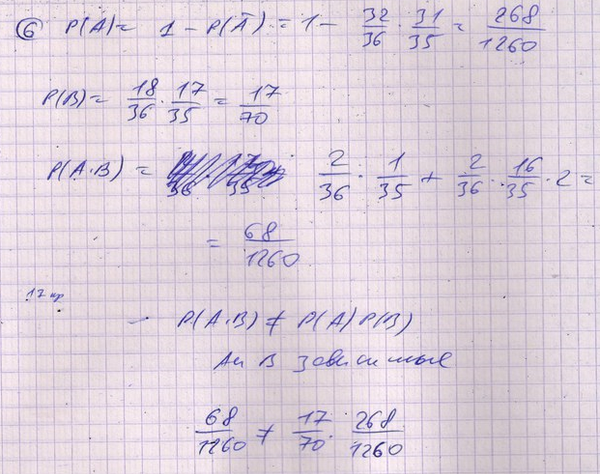 ⑥ P(A) = 1 - P(Ā) = 1 - 32/36 · 31/35 = 268/1260
P(B) = 18/36 · 17/35 = 17/70
P(A·B) = 2/36 · 1/35 + 2/36 · 16/35 · 2 =
= 68/1260
P(A·B) ≠ P(A)P(B)
A и B зависимые
68/1260 ≠ 17/70 · 268/1260